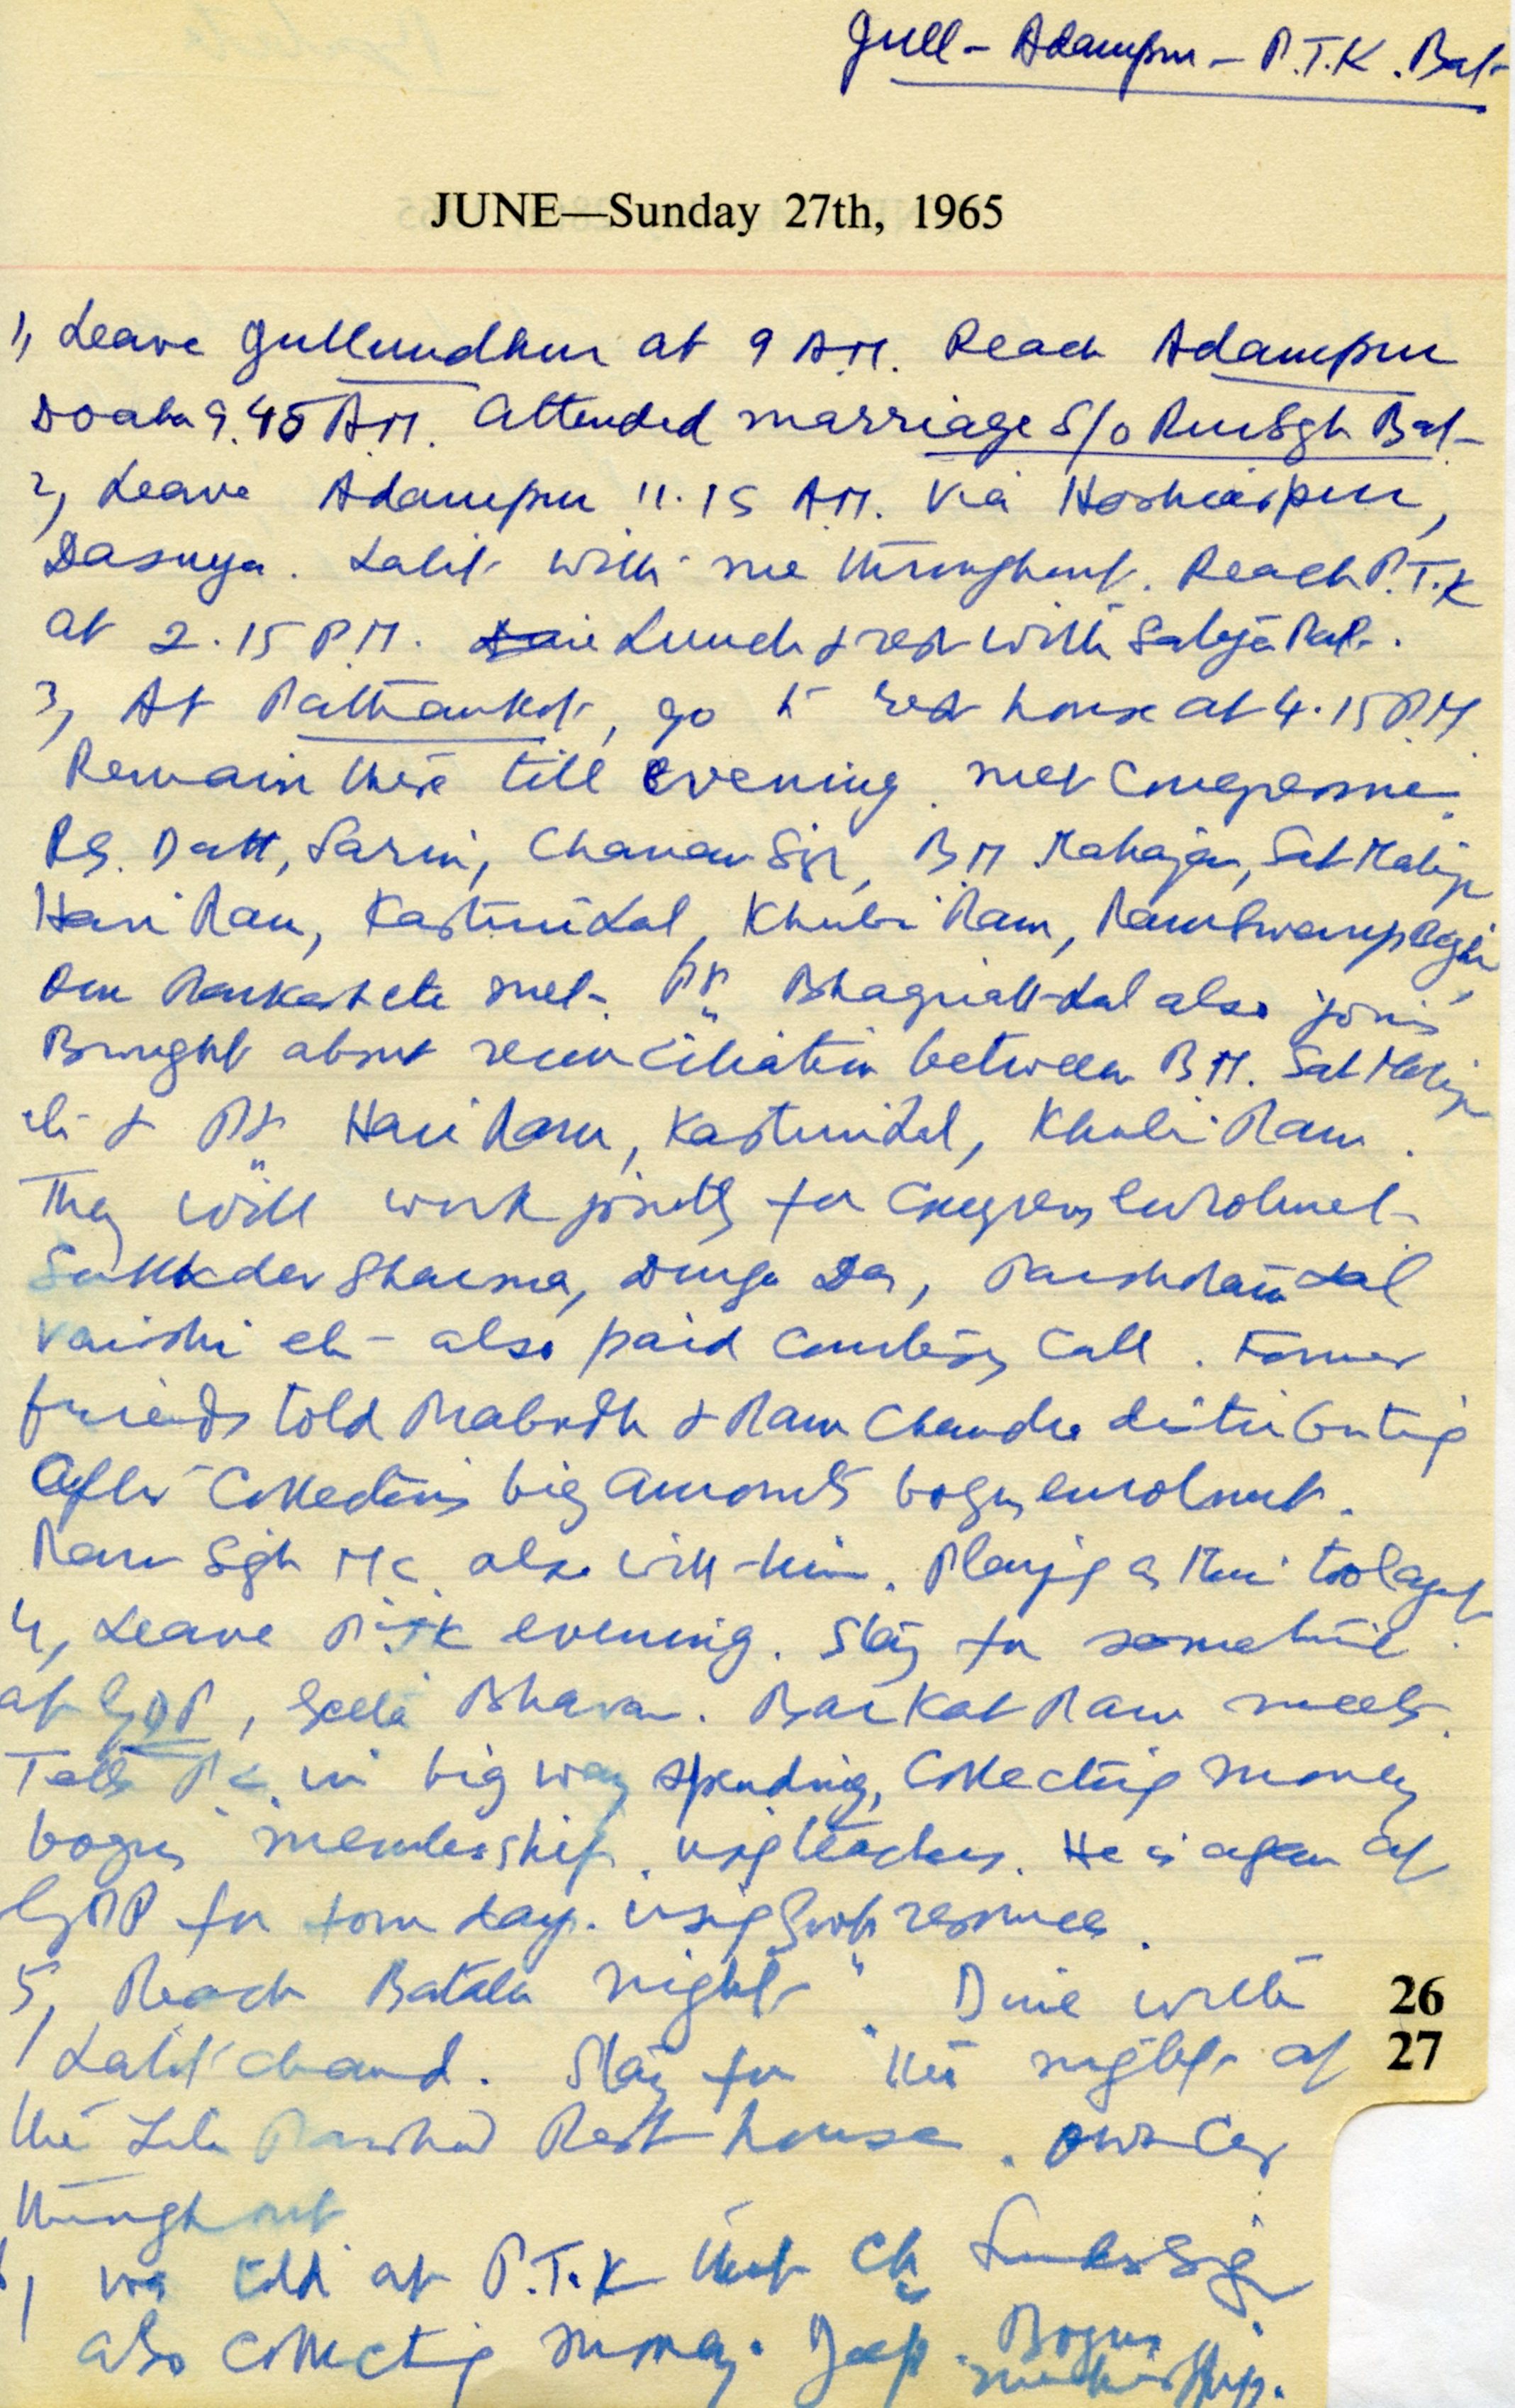 Jull - Adampur - P.T.K. Bat-
JUNE—Sunday 27th, 1965
1, Leave Jullundhur at 9 A.M. Reach Adampur
Doaba 9.45 A.M. Attended marriage S/o Sgh Bat-
2, Leave Adampur 11.15 A.M. Via Hoshiarpur,
Dasuya. Lalit with me throughout. Reach P.T.K
at 2.15 P.M. Lunch & rest with Satya Pal.
3, At Pathankot, go to rest house at 4.15 P.M
Remain there till evening. met
Datt, Sarin, Chanan Sgh, B M Mahajan, Sat Mahip
Hari Ram, Kasturi Lal, Khubi Ram, Ram Swarup
Om Parkash etc met. Pt. Bhagirath Lal also join
Brought about reconciliation between B M. Sat Mahip
etc & Pt. Hari Ram, Kasturi Lal, Khubi Ram.
They will work jointly for Congress enrolment
Sukhdev Sharma, Durga Das, Lal
Vaishi etc also paid courtesy call. Former
friends told Prabodh & Ram Chandra distributing
after collecting big amounts bogus enrolment.
Ram Sgh M.C. also with him. Playing as their tool
4, Leave P.T.K evening. Stay for sometime
at GDP, Geeta Bhavan. Barkat Ram meets.
Tells P.C. in big way spending, collecting money
bogus membership. using teachers. He is again at
GDP for four days. using Govt resources.
5, Reach Batala night. Dine with
26
Lalit Chand. Stay for the night at
27
the Rest house. own Car
throughout
6, was told at P.T.K that Ch.
also collecting money. Jeep. Bogus
membership.